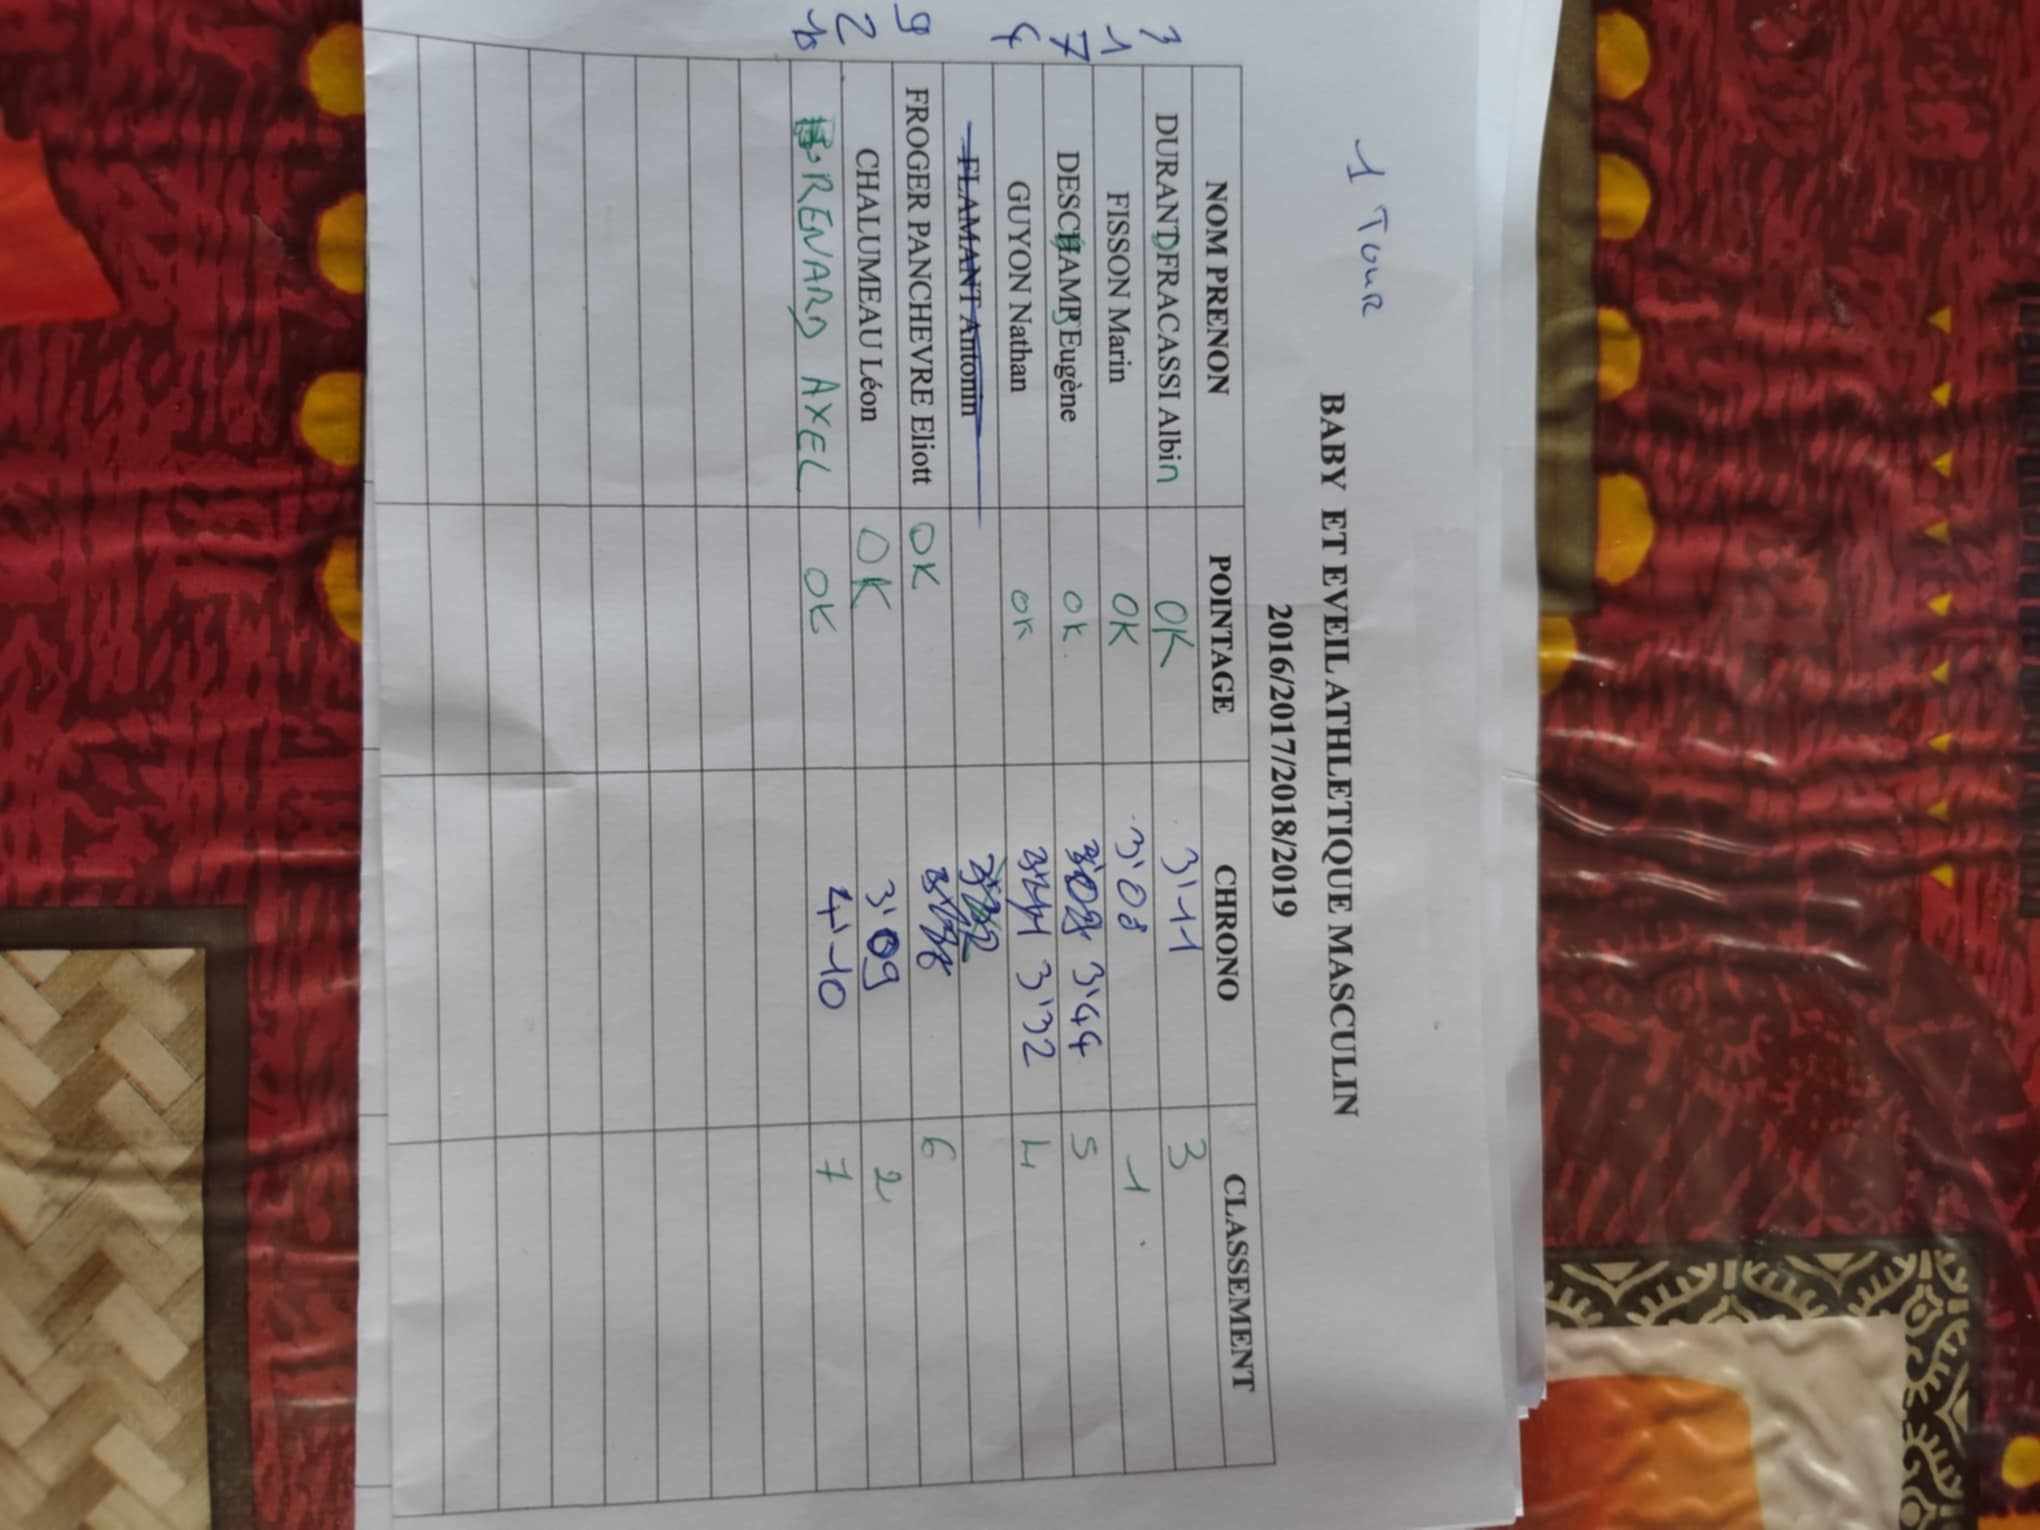 1 Tour
BABY ET EVEIL ATHLETIQUE MASCULIN
2016/2017/2018/2019
NOM PRENON POINTAGE CHRONO CLASSEMENT
3 DURANDFRACASSI Albin OK 3'11 3
1 FISSON Marin OK 3'08 1
7 DESCHAMPS Eugène OK 3'44 5
4 GUYON Nathan OK 3'32 4
FLAMANT Antonin
9 FROGER PANCHEVRE Eliott OK 6
2 CHALUMEAU Léon OK 3'09 2
10 RENARD AXEL OK 4'10 7